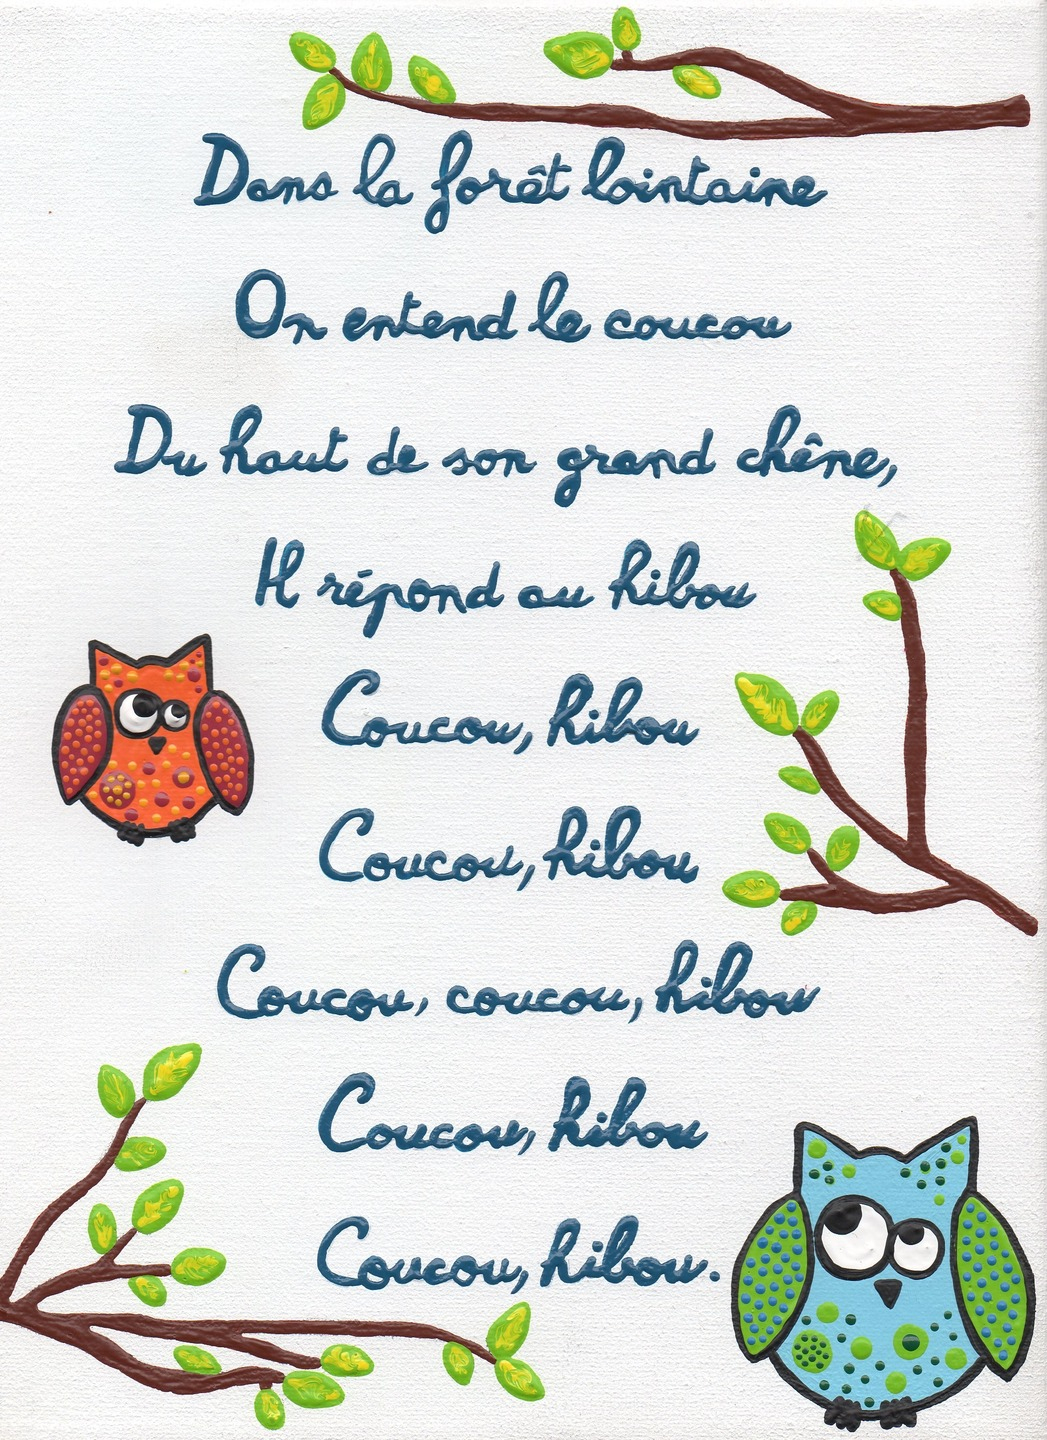 Dans la forêt lointaine
On entend le coucou
Du haut de son grand chêne,
Il répond au hibou
Coucou, hibou
Coucou, hibou
Coucou, coucou, hibou
Coucou, hibou
Coucou, hibou.